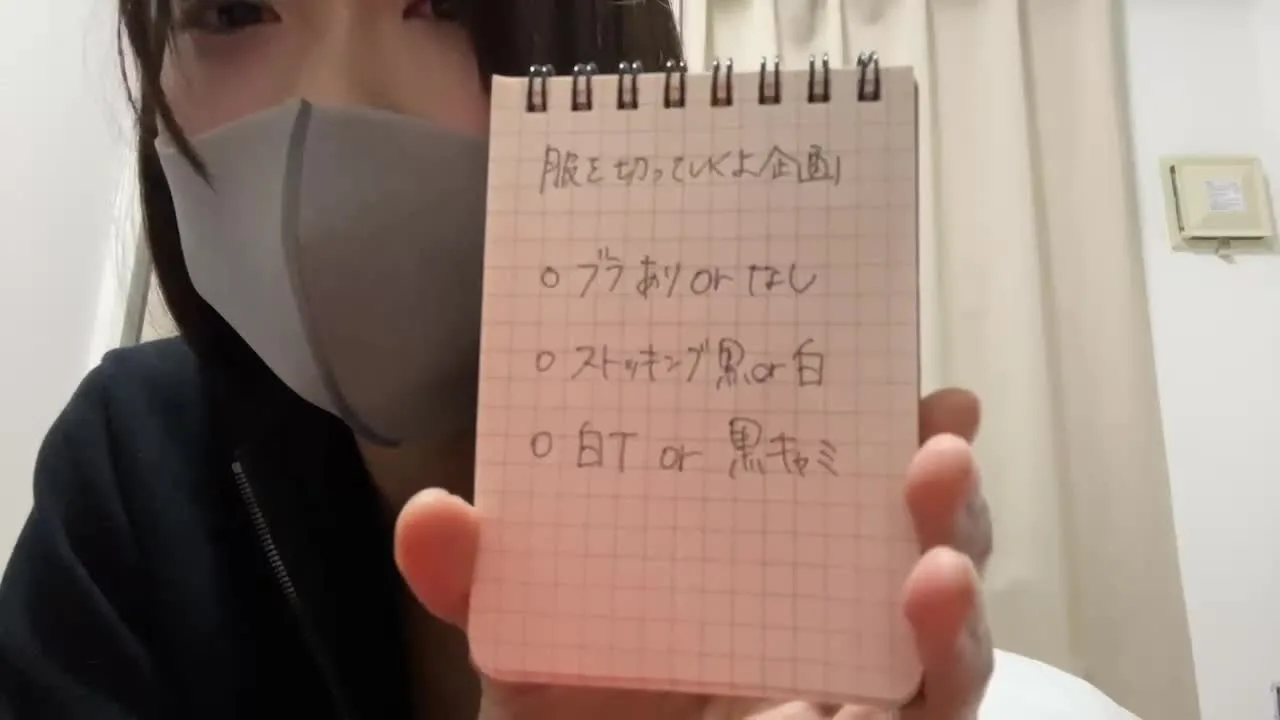 服を切っていくよ企画
○ ブラありorなし
○ ストッキング黒or白
○ 白T or 黒キャミ